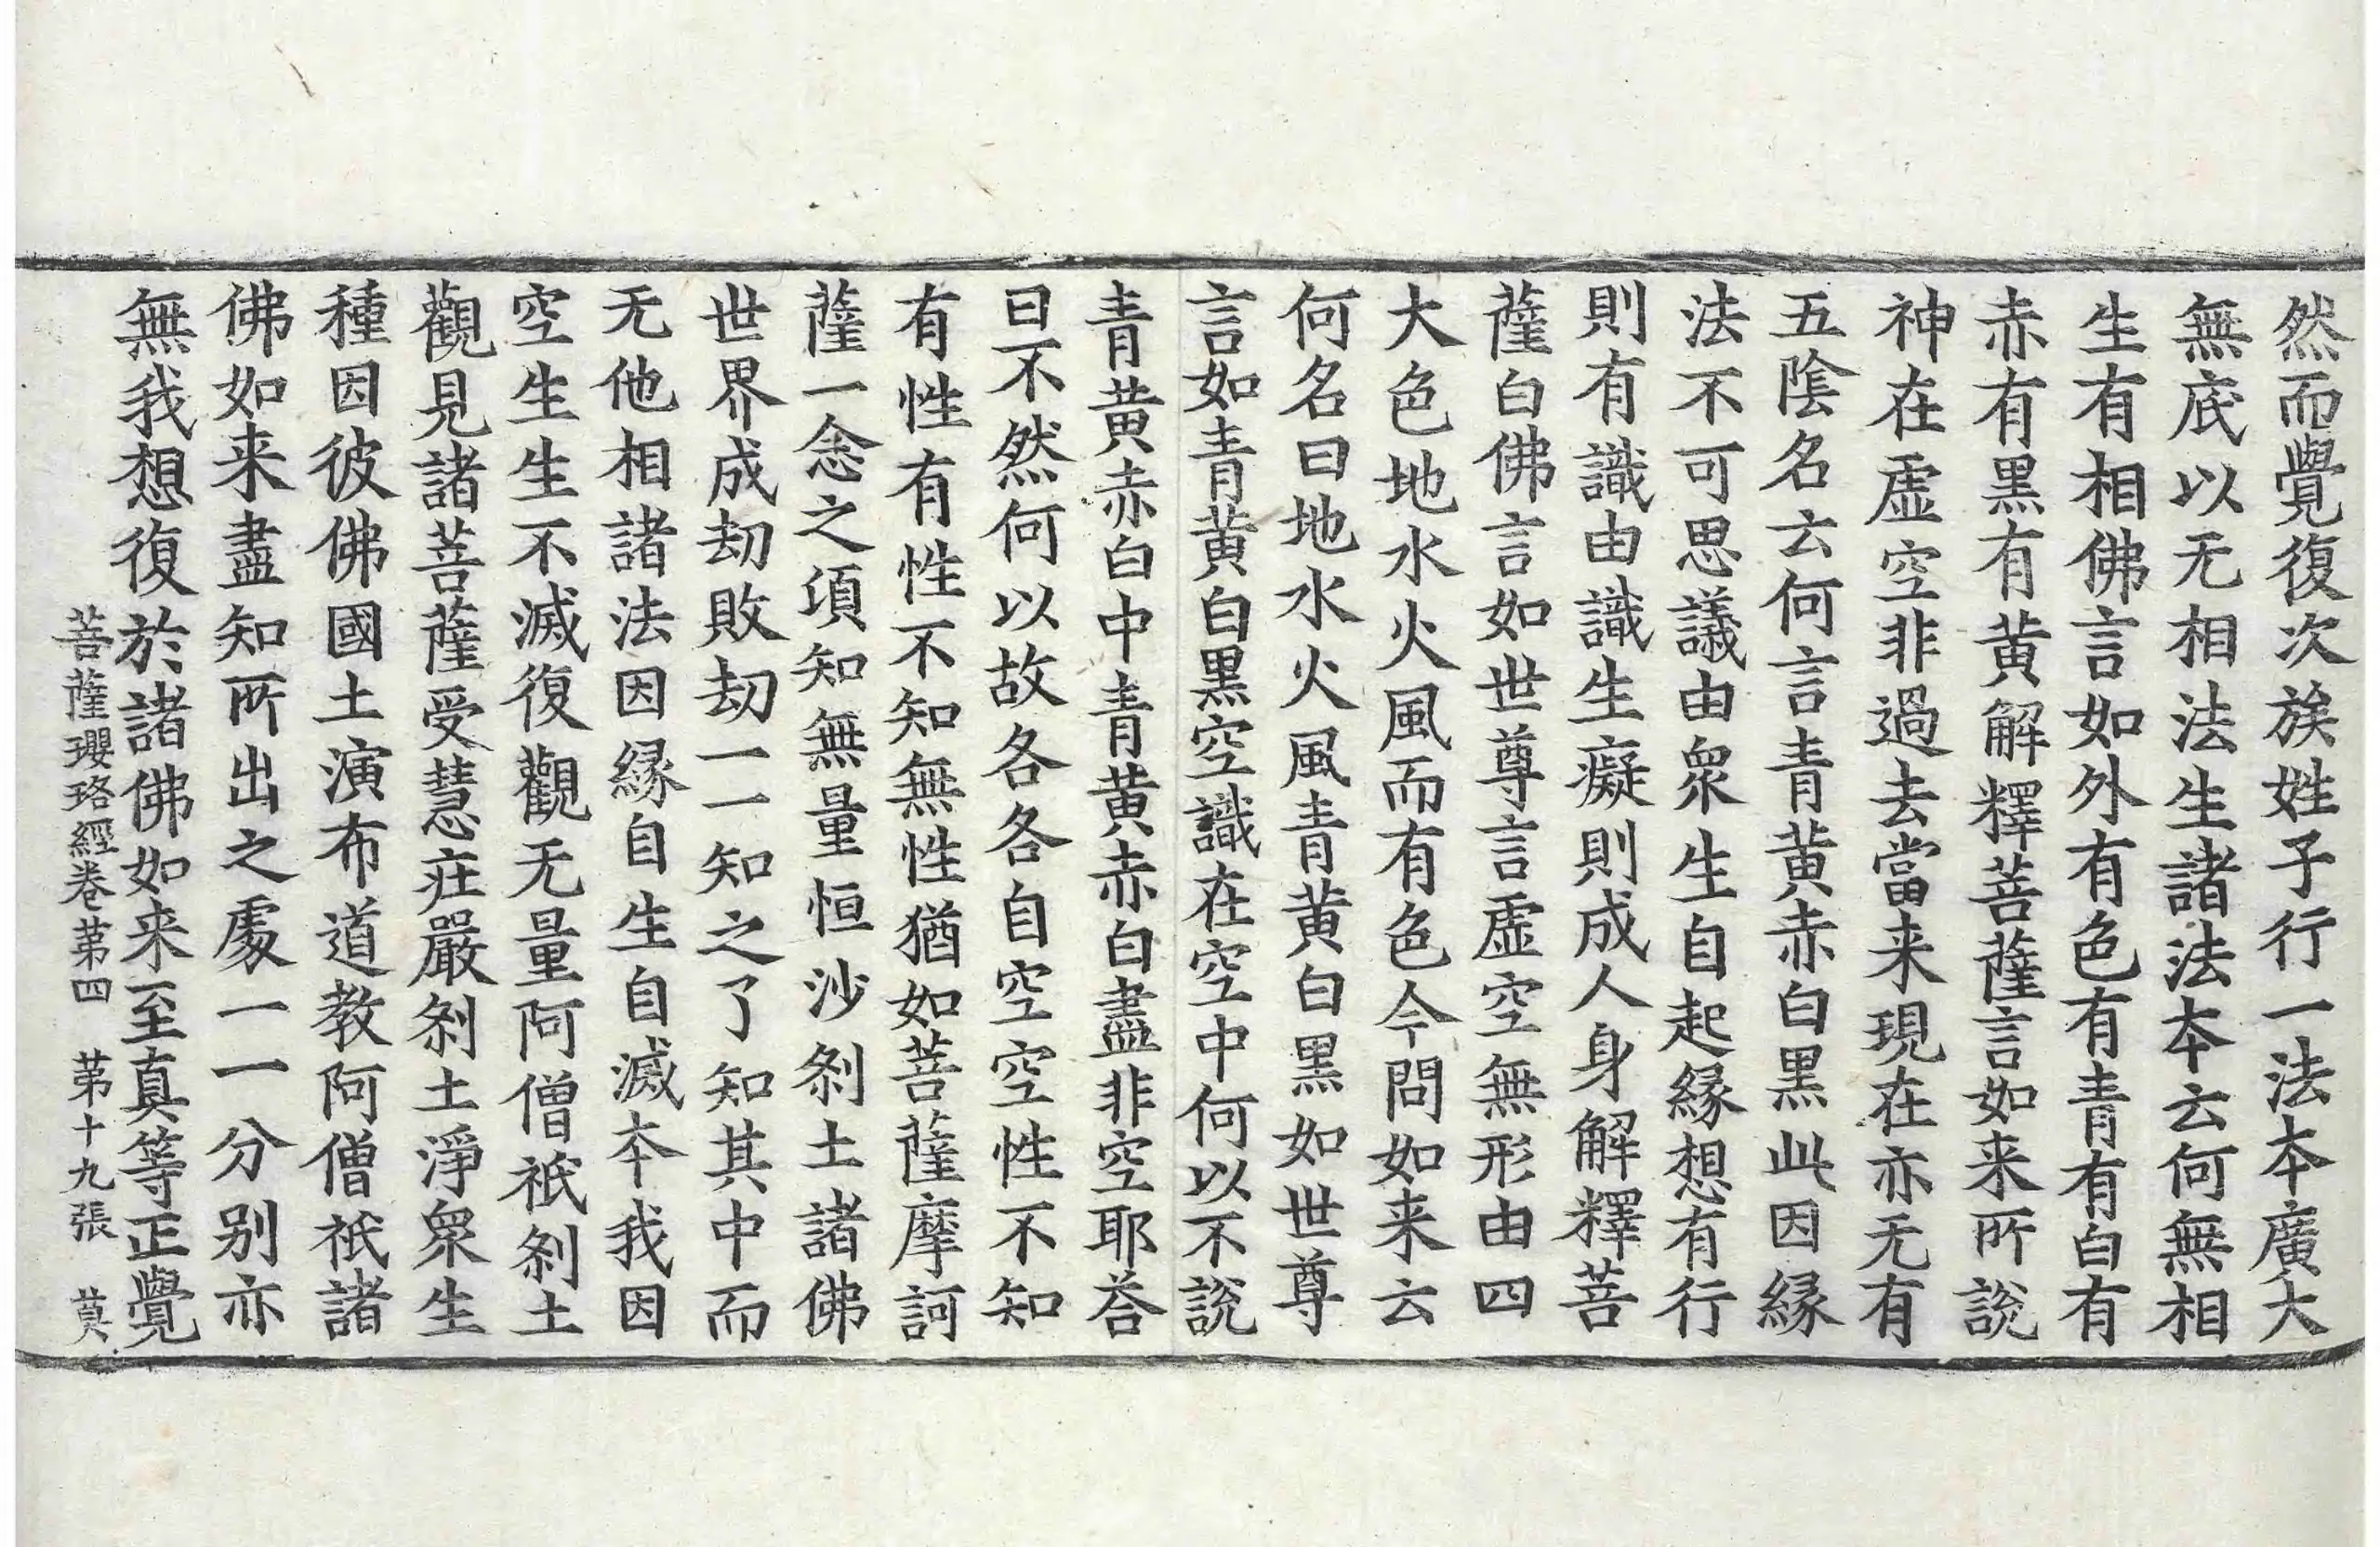 然而覺復次族姓子行一法本廣大
無底以无相法生諸法本云何無相
生有相佛言如外有色有青有白有
赤有黑有黄解釋菩薩言如来所說
神在虛空非過去當来現在亦无有
五陰名云何言青黄赤白黑此因緣
法不可思議由衆生自起緣想有行
則有識由識生癡則成人身解釋菩
薩白佛言如世尊言虛空無形由四
大色地水火風而有色今問如来云
何名曰地水火風青黄白黑如世尊
言如青黄白黑空識在空中何以不說
青黄赤白中青黄赤白盡非空耶荅
曰不然何以故各各自空空性不知
有性有性不知無性猶如菩薩摩訶
薩一念之頃知無量恒沙剎土諸佛
世界成劫敗劫一一知之了知其中而
无他相諸法因緣自生自滅本我因
空生生不滅復觀无量阿僧祇剎土
觀見諸菩薩受慧疘嚴剎土淨衆生
種因彼佛國土演布道教阿僧祇諸
佛如来盡知所出之處一一分别亦
無我想復於諸佛如来至真等正覺
菩薩瓔珞經卷苐四　苐十九張　莫